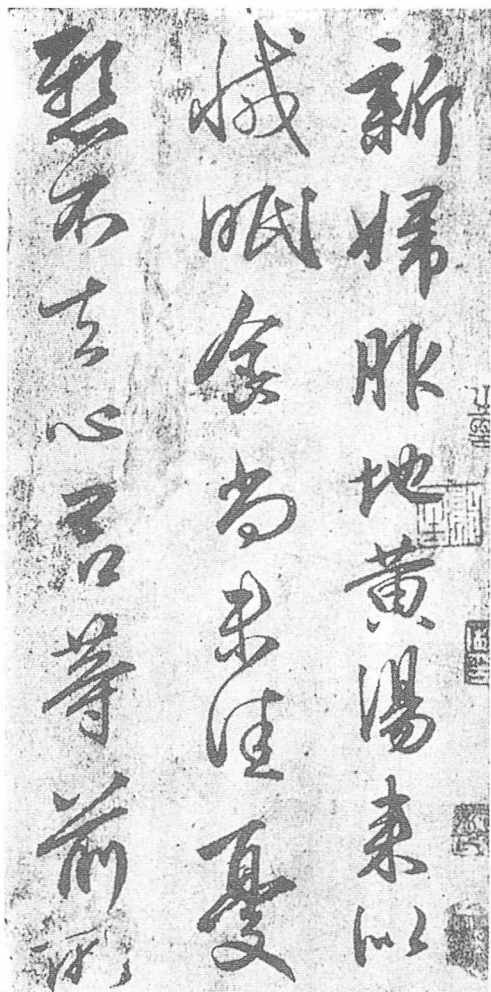 新婦服地黄湯來似
減眠食尚未佳憂
懸不去心君等前所